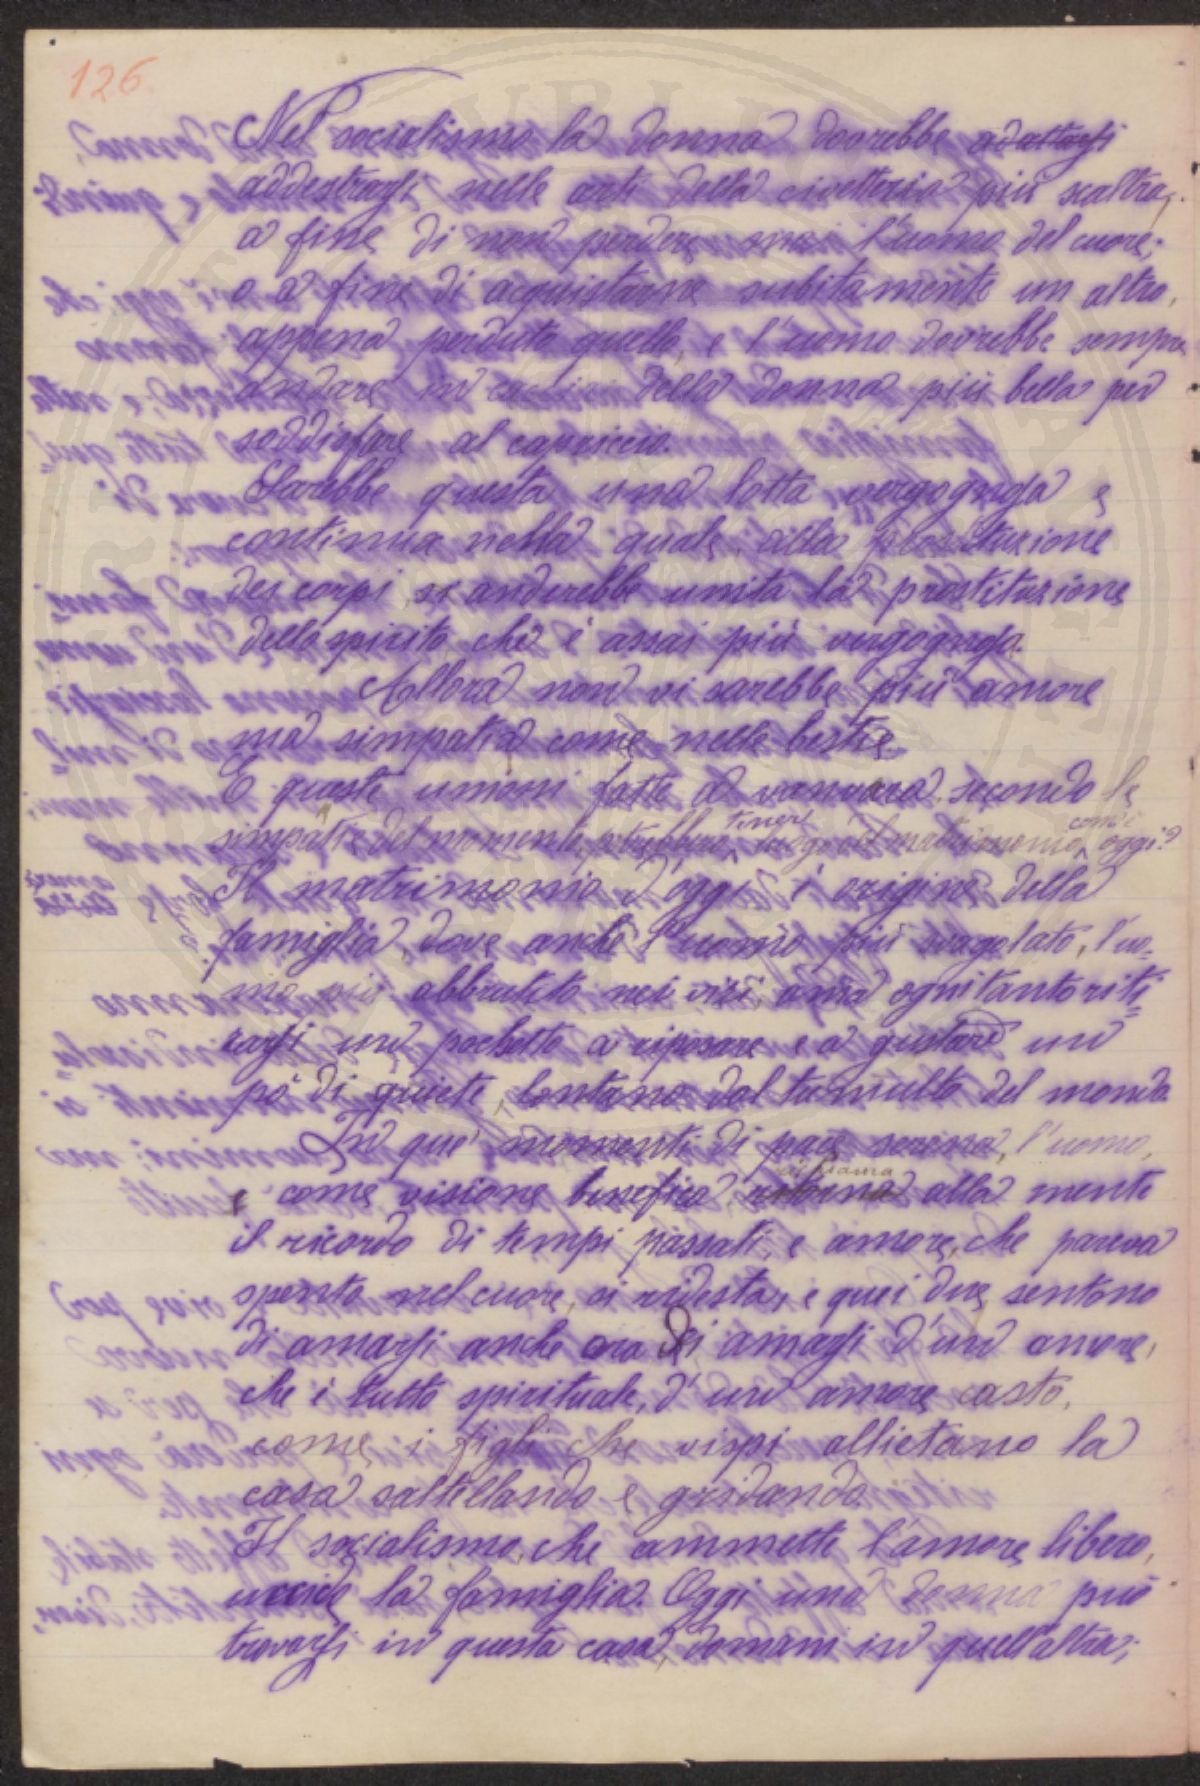 126
Nel socialismo la donna dovrebbe adattarsi
addestrarsi nelle arti della civetteria più scaltra,
a fine di non perdere mai l'uomo del cuore;
o a fine di acquistarne subitamente un altro,
appena perduto quello, e l'uomo dovrebbe sempre
andare in caccia della donna più bella per
soddisfare al capriccio.
Sarebbe questa una lotta vergognosa e
continua nella quale, alla prostituzione
dei corpi, si anderebbe unita la prostituzione
dello spirito, che è assai più vergognosa.
Allora non vi sarebbe più amore
ma simpatia come nelle bestie
E queste unioni fatte a vanvera, secondo le
simpatie del momento, potrebbero tenere luogo del matrimonio com'è oggi?
Il matrimonio d'oggi è origine della
famiglia, dove anche l'uomo più sregolato, l'uo-
mo più abbrutito nei vizi, ama ognitanto riti-
rarsi un pochetto a riposare e a gustare un
pò di quiete, lontano dal tumulto del mondo
In que' momenti di pace serena, l'uomo,
come visione benefica, richiama alla mente
il ricordo di tempi passati, e amore, che pareva
spento nel cuore, si ridesta, e quei due sentono
di amarsi anche ora di amarsi d'un amore,
che è tutto spirituale, d'un amore casto,
come i figli che vispi allietano la
casa saltellando e gridando.
Il socialismo, che ammette l'amore libero,
uccide la famiglia. Oggi una donna può
trovarsi in questa casa, domani in quell'altra;